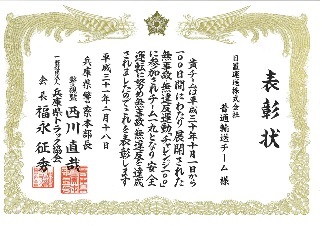 表彰状
日置運輸株式会社
普通輸送チーム 様
貴チームは平成三十年十月一日から
一〇〇日間にわたり展開された
無事故・無違反運動「チャレンジ一〇〇」
に参加されチーム一丸となり安全
運転に努め無事故・無違反を達成
されましたのでこれを表彰します
平成三十一年二月十八日
兵庫県警察本部長
警視監 西川直哉
一般社団法人 兵庫県トラック協会
会長 福永征秀